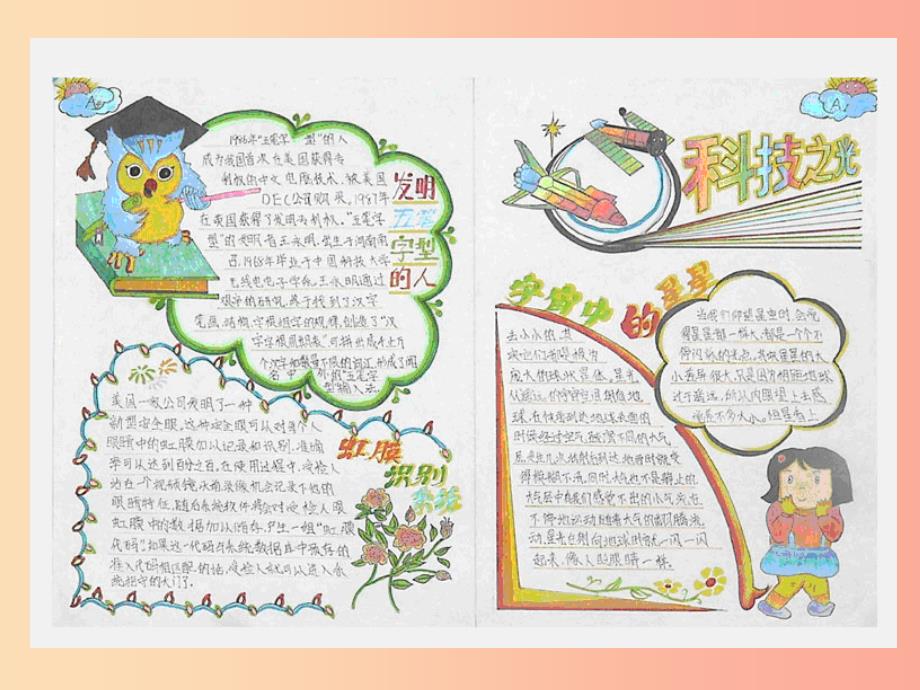 A
1986年"五笔字型"的人
成为我国首次在美国获得专
利权的中文电脑技术,被美国
DEC公司购买,1987年
在英国获得了发明专利权。"五笔字
型"的发明者王永明,出生于河南南
召,1968年毕业于中国科技大学
无线电电子学系,王永明通过
艰辛的研究,终于找到了汉字
笔画、结构、字根组字的规律,创造了"汉
字字根周期表"可拼出成千上万
个汉字和数量不限的词汇,形成了闻
名中的"五笔字
型"输入法
发明
五笔
字型
的人
美国一家公司发明了一种
新型安全眼,这种安全眼可以对每个人
眼睛中的虹膜加以记录和识别,准确
率可以达到百分之百,在使用过程中,受检人
站在个视频镜头前录像机会记录下他的
眼睛特征,随后系统软件将会对受检人眼
虹膜中的数据加以储存,产生一组"虹膜
代码"如果这一代码与系统数据库中预存的
准入代码相匹配的话,受检人就可以进入系
统把守的大门了.
虹膜
识别
系统
A
科技之光
宇宙中的星星
当我们仰望星空时,会觉
得星星都一样大,都是一个个不
停闪烁的光点,其实星星的大
小差异很大,只是因为相距地球
过于遥远,所以人肉眼望上去感
觉差不多大小,但是看上
去小小的,其
实它们都是极为
庞大的球状星体。星光
从遥远的宇宙空间射向地
球,在快要到达地球表面的
时候经过空气,被冷热不同的大气
层,使光几次折射后到达,地面时就变
得模糊不清,同时大气也不是静止的
大气层中有我们感觉不出的小气流,在
不停地运动,随着大气的翻腾流
动,星光在射向地球时就一闪一闪
起来,像人眨眼睛一样.